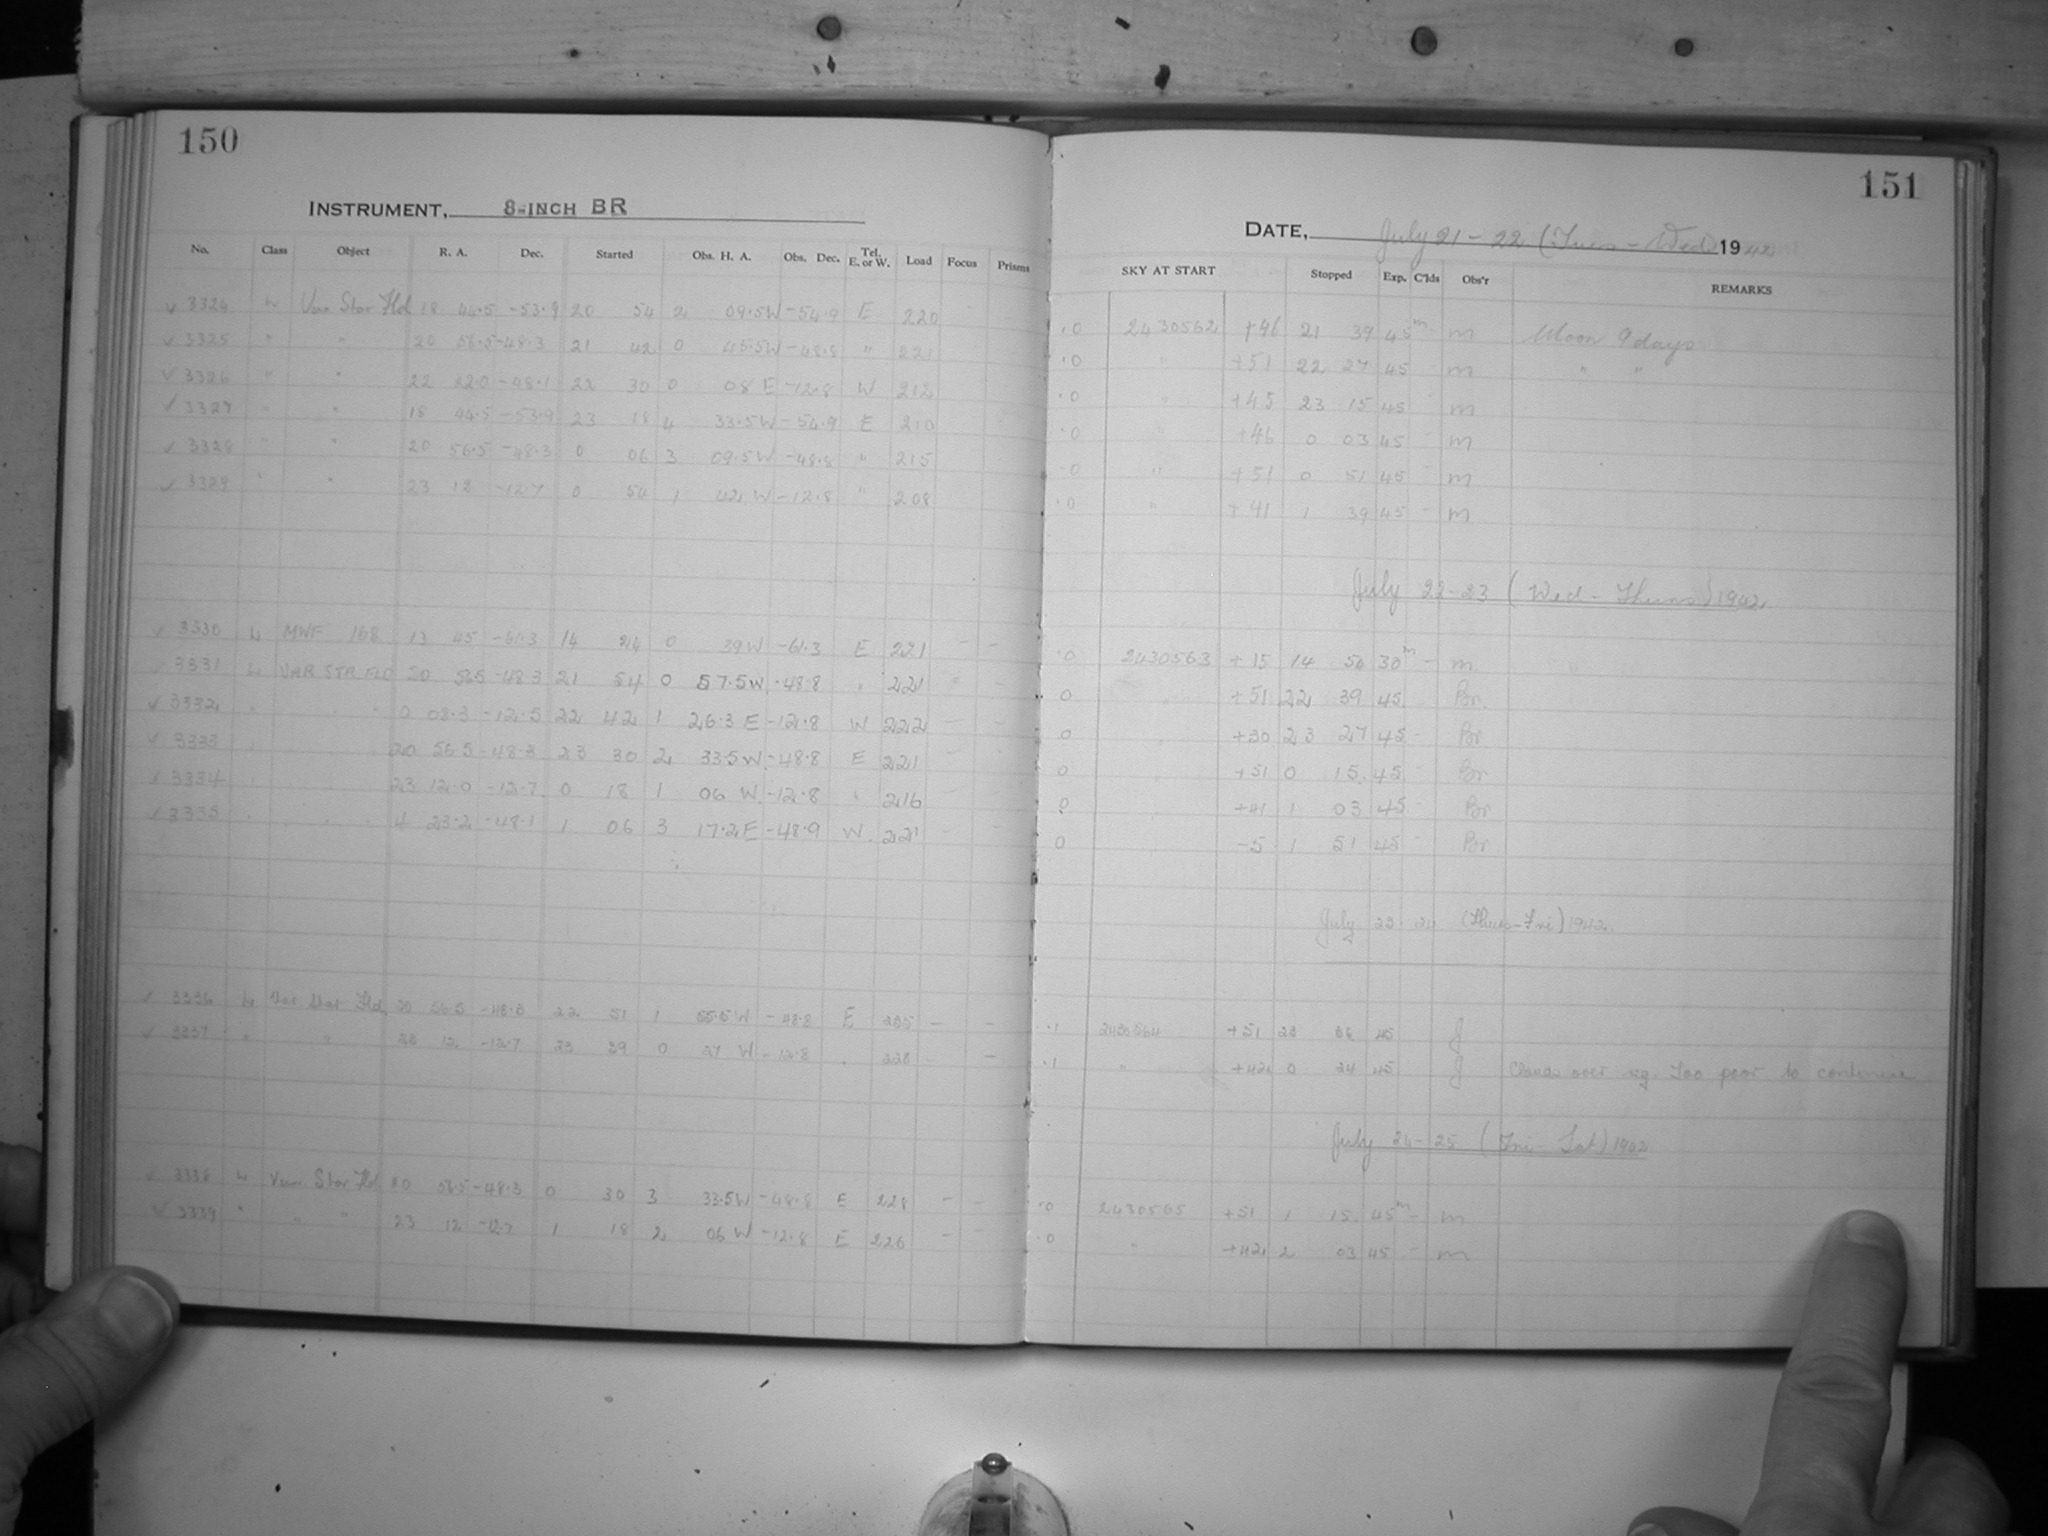 150
INSTRUMENT, 8-INCH BR
No. Class Object R. A. Dec. Started Obs. H. A. Obs. Dec. Tel. E. or W. Load Focus Prisms
√ 3324 Var Star Fld 18 44.5 -53.9 20 54 2 09.5W -54.9 E 220
√ 3325 " " 20 56.5 -48.3 21 42 0 45.5W -48.8 " 221
√ 3326 " " 22 22.0 -48.1 22 30 0 08 E -12.8 W 212
√ 3327 " " 18 44.5 -53.9 23 18 4 33.5W -54.9 E 210
√ 3328 " " 20 56.5 -48.3 0 06 3 09.5W -48.8 " 215
√ 3329 " " 23 12 -12.7 0 54 1 42 W -12.8 " 208
√ 3330 MWF 168 13 45 -61.3 14 24 0 39W -61.3 E 221 – –
√ 3331 VAR STR FLD 20 56.5 -48.3 21 54 0 57.5W -48.8 221
√ 3332 0 08.3 -12.5 22 42 1 26.3 E -12.8 W 222
√ 3333 20 56.5 -48.3 23 30 2 33.5W -48.8 E 221
√ 3334 23 12.0 -12.7 0 18 1 06 W -12.8 216
√ 3335 4 23.2 -48.1 1 06 3 17.2E -48.9 W 221
√ 3336 Var Star Fld 20 56.5 -48.3 22 51 1 55.5W -48.8 E 235 – –
√ 3337 " " 23 12 -12.7 23 39 0 27 W -12.8 228 – –
√ 3338 Var Star Fld 20 56.5 -48.3 0 30 3 33.5W -48.8 E 228 – –
√ 3339 " " " 23 12 -12.7 1 18 2 06 W -12.8 E 226 – –
151
DATE, July 21-22 (Tues - Wed) 1942
SKY AT START Stopped Exp. C'lds Obs'r REMARKS
.0 2430562 +46 21 39 45m – m Moon 9 days
.0 " +51 22 27 45 – m " "
.0 " +45 23 15 45 – m
.0 " +46 0 03 45 – m
.0 " +51 0 51 45 – m
.0 " +41 1 39 45 – m
July 22-23 (Wed - Thurs) 1942
.0 2430563 +15 14 54 30m – m
0 +51 22 39 45 Br.
0 +30 23 27 45 – Br
0 +51 0 15 45 Br
0 +41 1 03 45 – Br
0 -5 1 51 45 – Br
July 23 24 (Thurs-Fri) 1942
.1 2430564 +51 23 36 45 J
.1 " +42 0 24 45 J Clouds over reg. Too poor to continue
July 24-25 (Fri - Sat) 1942
.0 2430565 +51 1 15 45m – m
.0 " +42 2 03 45 – m